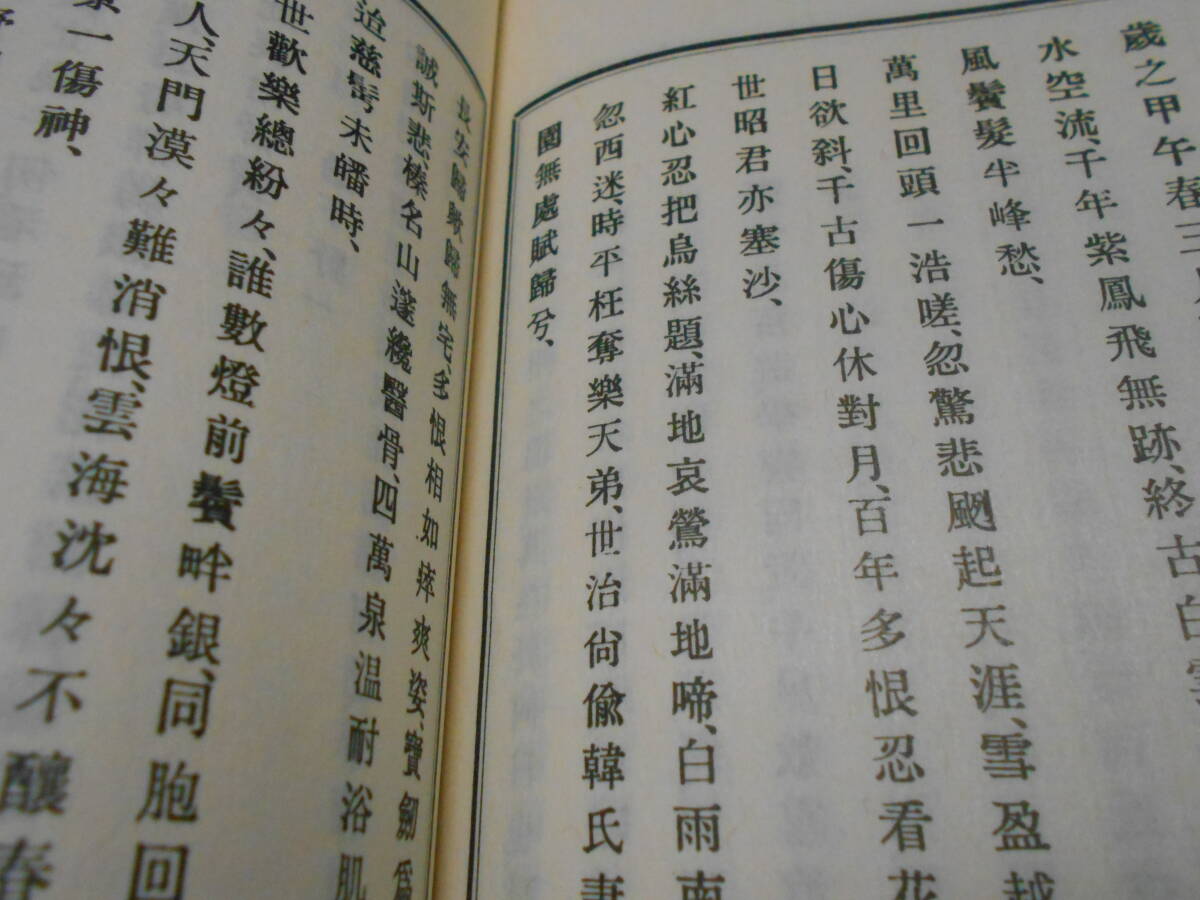 歲之甲午春三
水空流、千年紫鳳飛無跡、終古白
風鬢髮半峰愁、
萬里回頭一浩嗟、忽驚悲颸起天涯、雪盈越
日欲斜、千古傷心休對月、百年多恨忍看花
世昭君亦塞沙、
紅心忍把烏絲題、滿地哀鶯滿地啼、白雨南
忽西迷、時平枉奪樂天弟、世治尙偸韓氏妻
園無處賦歸兮、
長安歸歟歸無宅、多恨相如瘁爽姿、寶劍爲
誠斯悲、榛名山邃纔醫骨、四萬泉温耐浴肌
迨慈髩未皤時、
世歡樂總紛々、誰數燈前鬢畔銀、同胞回
人、天門漠々難消恨、雲海沈々不釀春
一傷神、